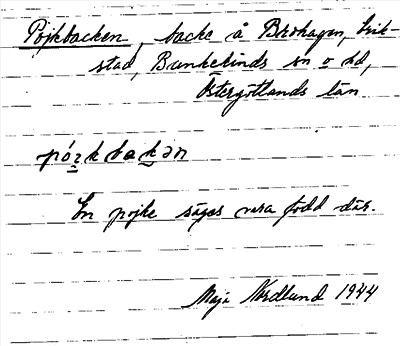 Pojkbacken, backe å Brohagen, Erik-
stad, Bankekinds sn o hd,
Östergötlands län
pózkbakən
En pojke säges vara född där.
Maja Nordlund 1944